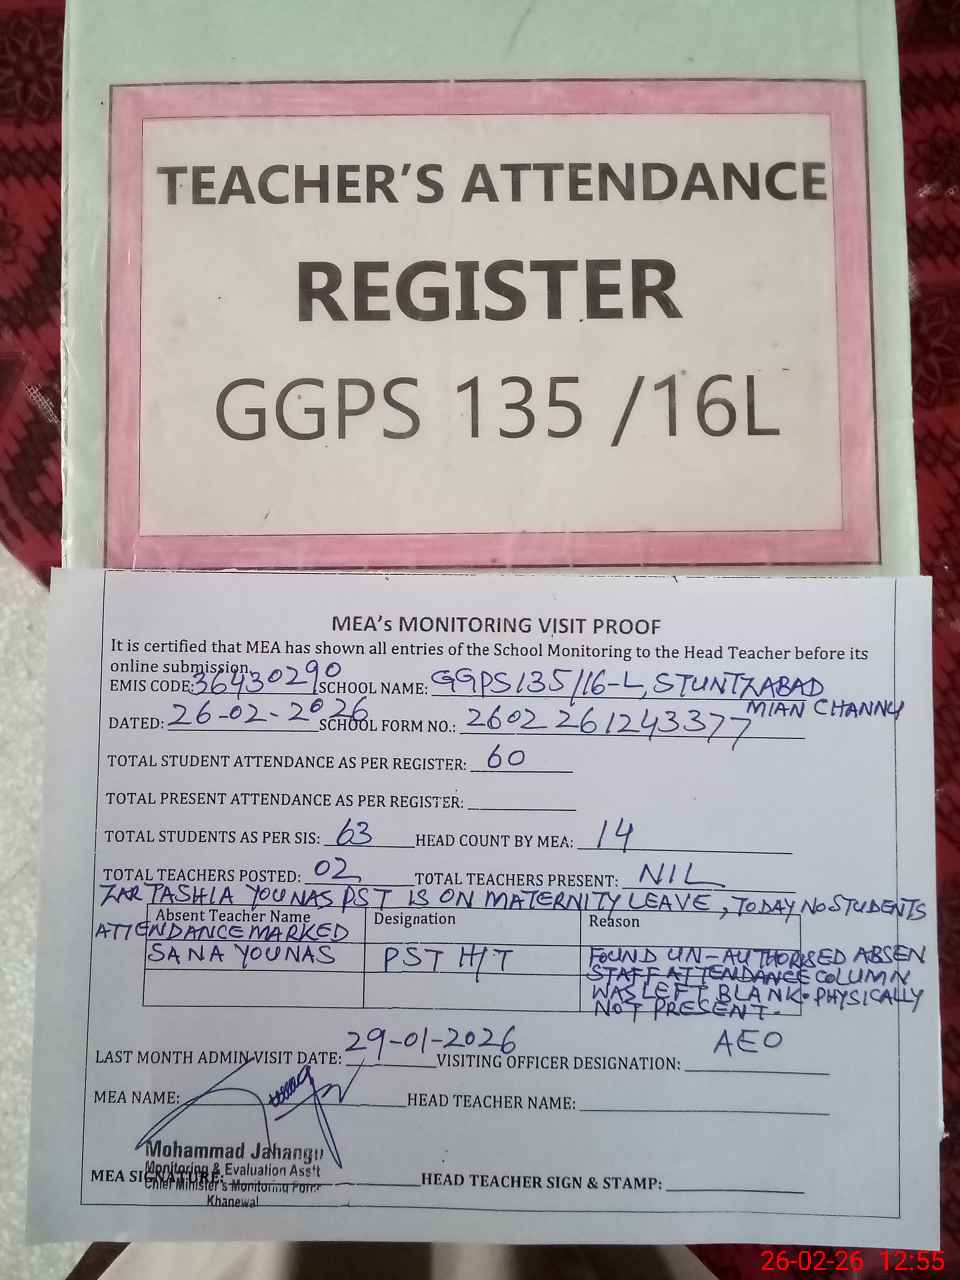 TEACHER'S ATTENDANCE
REGISTER
GGPS 135 /16L
MEA's MONITORING VISIT PROOF
It is certified that MEA has shown all entries of the School Monitoring to the Head Teacher before its
online submission.
EMIS CODE: 36430290 SCHOOL NAME: GGPS 135/16-L, STUNTZABAD
MIAN CHANNU
DATED: 26-02-2026 SCHOOL FORM NO.: 2602261243377
TOTAL STUDENT ATTENDANCE AS PER REGISTER: 60
TOTAL PRESENT ATTENDANCE AS PER REGISTER:
TOTAL STUDENTS AS PER SIS: 63 HEAD COUNT BY MEA: 14
TOTAL TEACHERS POSTED: 02 TOTAL TEACHERS PRESENT: NIL
ZARTASHIA YOUNAS PST IS ON MATERNITY LEAVE, TODAY NO STUDENTS
ATTENDANCE MARKED
Absent Teacher Name Designation Reason
SANA YOUNAS PST H/T FOUND UN-AUTHORISED ABSEN
STAFF ATTENDANCE COLUMN
WAS LEFT BLANK. PHYSICALLY
NOT PRESENT.
LAST MONTH ADMIN VISIT DATE: 29-01-2026 VISITING OFFICER DESIGNATION: AEO
MEA NAME: HEAD TEACHER NAME:
Mohammad Jahangir
Monitoring & Evaluation Ass't
MEA SIGNATURE: HEAD TEACHER SIGN & STAMP:
Chief Minister's Monitoring Force
Khanewal
26-02-26 12:55